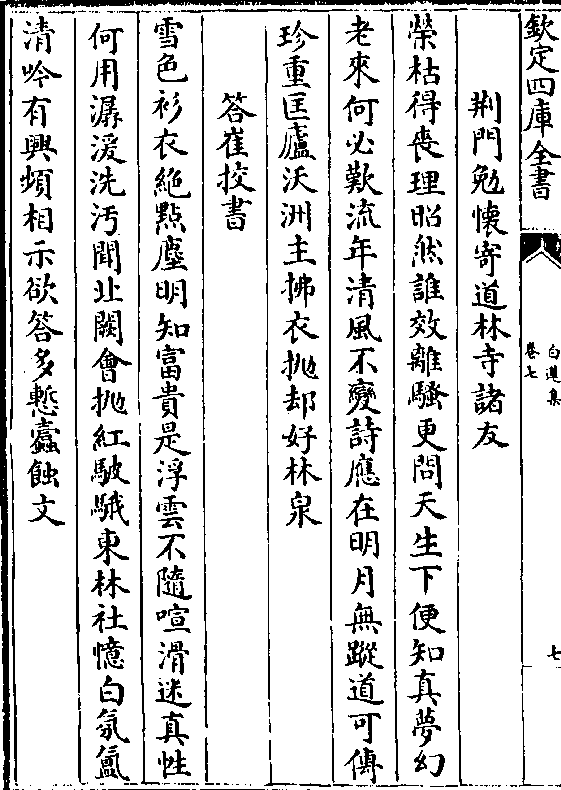 欽定四庫全書
白蓮集
卷七
七
荆門勉懷寄道林寺諸友
榮枯得喪理昭然誰效離騷更問天生下便知真夢幻
老來何必歎流年清風不變詩應在明月無蹤道可傳
珍重匡廬沃洲主拂衣抛却好林泉
答崔挍書
雪色衫衣絶點塵明知富貴是浮雲不隨喧滑迷真性
何用潺湲洗汚聞北闕會抛紅駊騀東林社憶白氛氲
清吟有興頻相示欲答多慙蠧蝕文